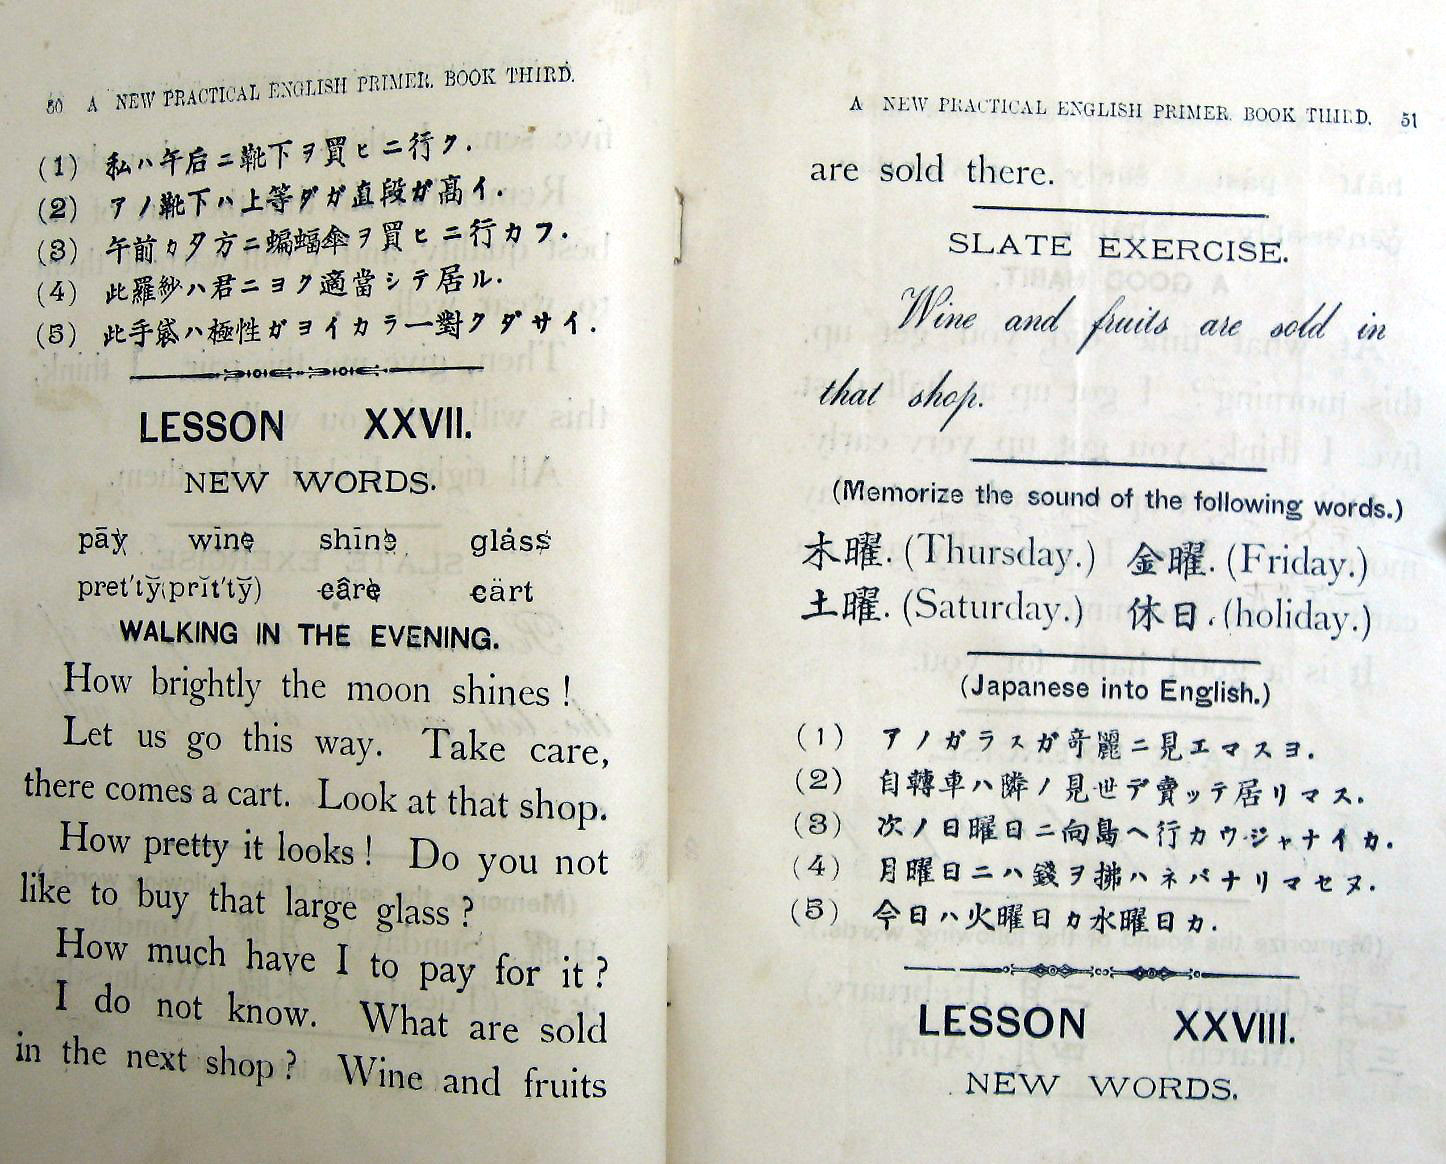 50 A NEW PRACTICAL ENGLISH PRIMER. BOOK THIRD.
(1) 私ハ午后ニ靴下ヲ買ヒニ行ク.
(2) アノ靴下ハ上等ダガ直段ガ高イ.
(3) 午前カ夕方ニ蝙蝠傘ヲ買ヒニ行カフ.
(4) 此羅紗ハ君ニヨク適當シテ居ル.
(5) 此手袋ハ極性ガヨイカラ一對クダサイ.
LESSON XXVII.
NEW WORDS.
pāy wīne shīne glȧss
pret′tў(prĭt′tў) câre cärt
WALKING IN THE EVENING.
How brightly the moon shines!
Let us go this way. Take care,
there comes a cart. Look at that shop.
How pretty it looks! Do you not
like to buy that large glass?
How much have I to pay for it?
I do not know. What are sold
in the next shop? Wine and fruits
A NEW PRACTICAL ENGLISH PRIMER. BOOK THIRD. 51
are sold there.
SLATE EXERCISE.
Wine and fruits are sold in
that shop.
(Memorize the sound of the following words.)
木曜. (Thursday.) 金曜. (Friday.)
土曜. (Saturday.) 休日. (holiday.)
(Japanese into English.)
(1) アノガラスガ奇麗ニ見エマスヨ.
(2) 自轉車ハ隣ノ見世デ賣ッテ居リマス.
(3) 次ノ日曜日ニ向島ヘ行カウジャナイカ.
(4) 月曜日ニハ錢ヲ拂ハネバナリマセヌ.
(5) 今日ハ火曜日カ水曜日カ.
LESSON XXVIII.
NEW WORDS.